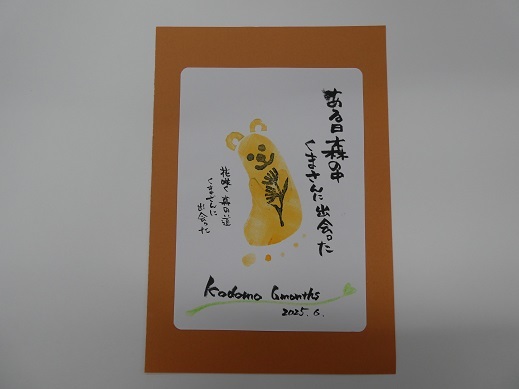 ある日森の中
くまさんに出会った
花咲く森の道
くまさんに
出会った
Kodomo 6months
2025.6.